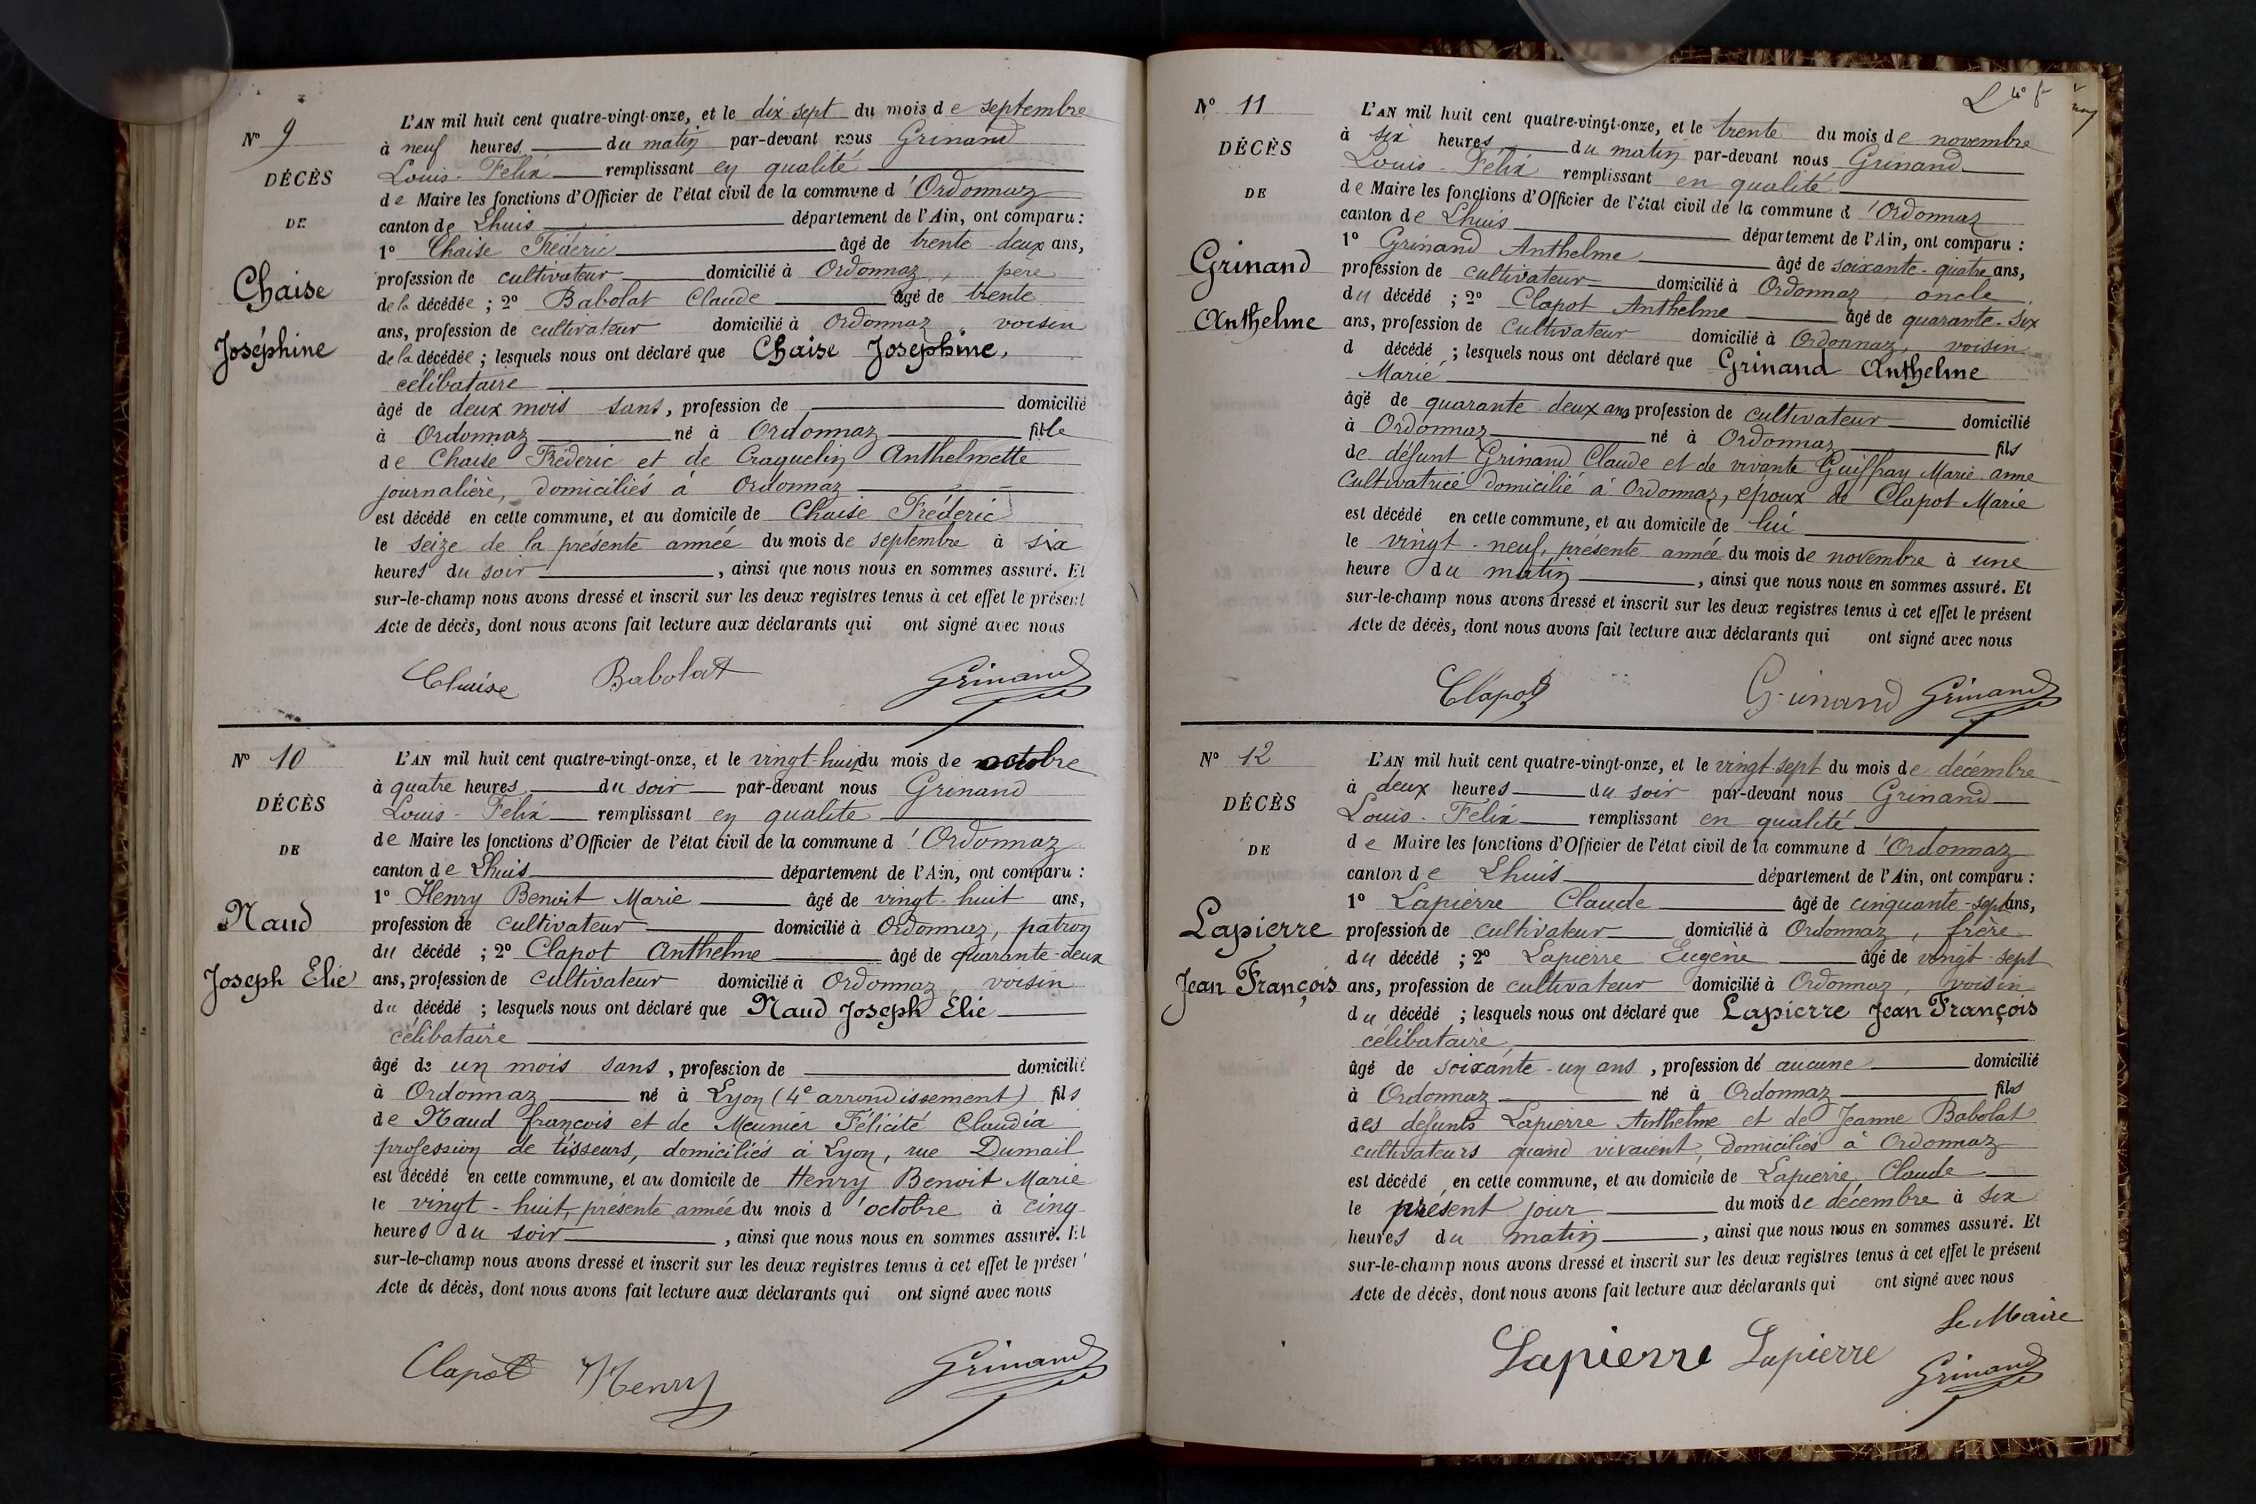 N° 9
DÉCÈS
DE
Chaise
Joséphine
L'AN mil huit cent quatre-vingt-onze, et le dix sept du mois de septembre
à neuf heures du matin par-devant nous Grinand
Louis-Félix remplissant en qualité
de Maire les fonctions d'Officier de l'état civil de la commune d'Ordonnaz
canton de Lhuis département de l'Ain, ont comparu :
1° Chaise Fréderic âgé de trente-deux ans,
profession de cultivateur domicilié à Ordonnaz, père
de la décédée ; 2° Babolat Claude âgé de trente
ans, profession de cultivateur domicilié à Ordonnaz, voisin
de la décédée ; lesquels nous ont déclaré que Chaise Joséphine,
célibataire
âgé de deux mois sans, profession de domicilié
à Ordonnaz né à Ordonnaz fille
de Chaise Fréderic et de Craquelin Anthelmette
journalière, domiciliés à Ordonnaz
est décédé en cette commune, et au domicile de Chaise Fréderic
le seize de la présente année du mois de septembre à six
heures du soir , ainsi que nous nous en sommes assuré. Et
sur-le-champ nous avons dressé et inscrit sur les deux registres tenus à cet effet le présent
Acte de décès, dont nous avons fait lecture aux déclarants qui ont signé avec nous
Chaise Babolat Grinand
N° 10
DÉCÈS
DE
Naud
Joseph Elie
L'AN mil huit cent quatre-vingt-onze, et le vingt-huit du mois de octobre
à quatre heures du soir par-devant nous Grinand
Louis-Félix remplissant en qualité
de Maire les fonctions d'Officier de l'état civil de la commune d'Ordonnaz
canton de Lhuis département de l'Ain, ont comparu :
1° Henry Benoit Marie âgé de vingt-huit ans,
profession de cultivateur domicilié à Ordonnaz, patron
du décédé ; 2° Clapot Anthelme âgé de quarante-deux
ans, profession de cultivateur domicilié à Ordonnaz, voisin
du décédé ; lesquels nous ont déclaré que Naud Joseph Elie
célibataire
âgé de un mois sans, profession de domicilié
à Ordonnaz né à Lyon (4e arrondissement) fils
de Naud françois et de Meunier Félicité Claudia
profession de tisseurs, domiciliés à Lyon, rue Dumail
est décédé en cette commune, et au domicile de Henry Benoit Marie
le vingt-huit, présente année du mois d'octobre à cinq
heures du soir , ainsi que nous nous en sommes assuré. Et
sur-le-champ nous avons dressé et inscrit sur les deux registres tenus à cet effet le présent
Acte de décès, dont nous avons fait lecture aux déclarants qui ont signé avec nous
Clapot Henry Grinand
N° 11
DÉCÈS
DE
Grinand
Anthelme
L'AN mil huit cent quatre-vingt-onze, et le trente du mois de novembre
à six heures du matin par-devant nous Grinand
Louis-Félix remplissant en qualité
de Maire les fonctions d'Officier de l'état civil de la commune d'Ordonnaz
canton de Lhuis département de l'Ain, ont comparu :
1° Grinand Anthelme âgé de soixante-quatre ans,
profession de cultivateur domicilié à Ordonnaz, oncle
du décédé ; 2° Clapot Anthelme âgé de quarante-six
ans, profession de cultivateur domicilié à Ordonnaz, voisin
d décédé ; lesquels nous ont déclaré que Grinand Anthelme
Marié
âgé de quarante-deux ans profession de cultivateur domicilié
à Ordonnaz né à Ordonnaz fils
de défunt Grinand Claude et de vivante Guiffray Marie-anne
cultivatrice domicilié à Ordonnaz, époux de Clapot Marie
est décédé en cette commune, et au domicile de lui
le vingt-neuf, présente année du mois de novembre à une
heure du matin , ainsi que nous nous en sommes assuré. Et
sur-le-champ nous avons dressé et inscrit sur les deux registres tenus à cet effet le présent
Acte de décès, dont nous avons fait lecture aux déclarants qui ont signé avec nous
Clapot Grinand Grinand
N° 12
DÉCÈS
DE
Lapierre
Jean François
L'AN mil huit cent quatre-vingt-onze, et le vingt-sept du mois de décembre
à deux heures du soir par-devant nous Grinand
Louis-Félix remplissant en qualité
de Maire les fonctions d'Officier de l'état civil de la commune d'Ordonnaz
canton de Lhuis département de l'Ain, ont comparu :
1° Lapierre Claude âgé de cinquante-sept ans,
profession de cultivateur domicilié à Ordonnaz, frère
du décédé ; 2° Lapierre Eugène âgé de vingt-sept
ans, profession de cultivateur domicilié à Ordonnaz, voisin
du décédé ; lesquels nous ont déclaré que Lapierre Jean François
célibataire,
âgé de soixante-un ans, profession de aucune domicilié
à Ordonnaz né à Ordonnaz fils
des défunts Lapierre Anthelme et de Jeanne Babolat
cultivateurs quand vivaient, domiciliés à Ordonnaz
est décédé en cette commune, et au domicile de Lapierre Claude
le présent jour du mois de décembre à six
heures du matin , ainsi que nous nous en sommes assuré. Et
sur-le-champ nous avons dressé et inscrit sur les deux registres tenus à cet effet le présent
Acte de décès, dont nous avons fait lecture aux déclarants qui ont signé avec nous
Le Maire
Lapierre Lapierre Grinand